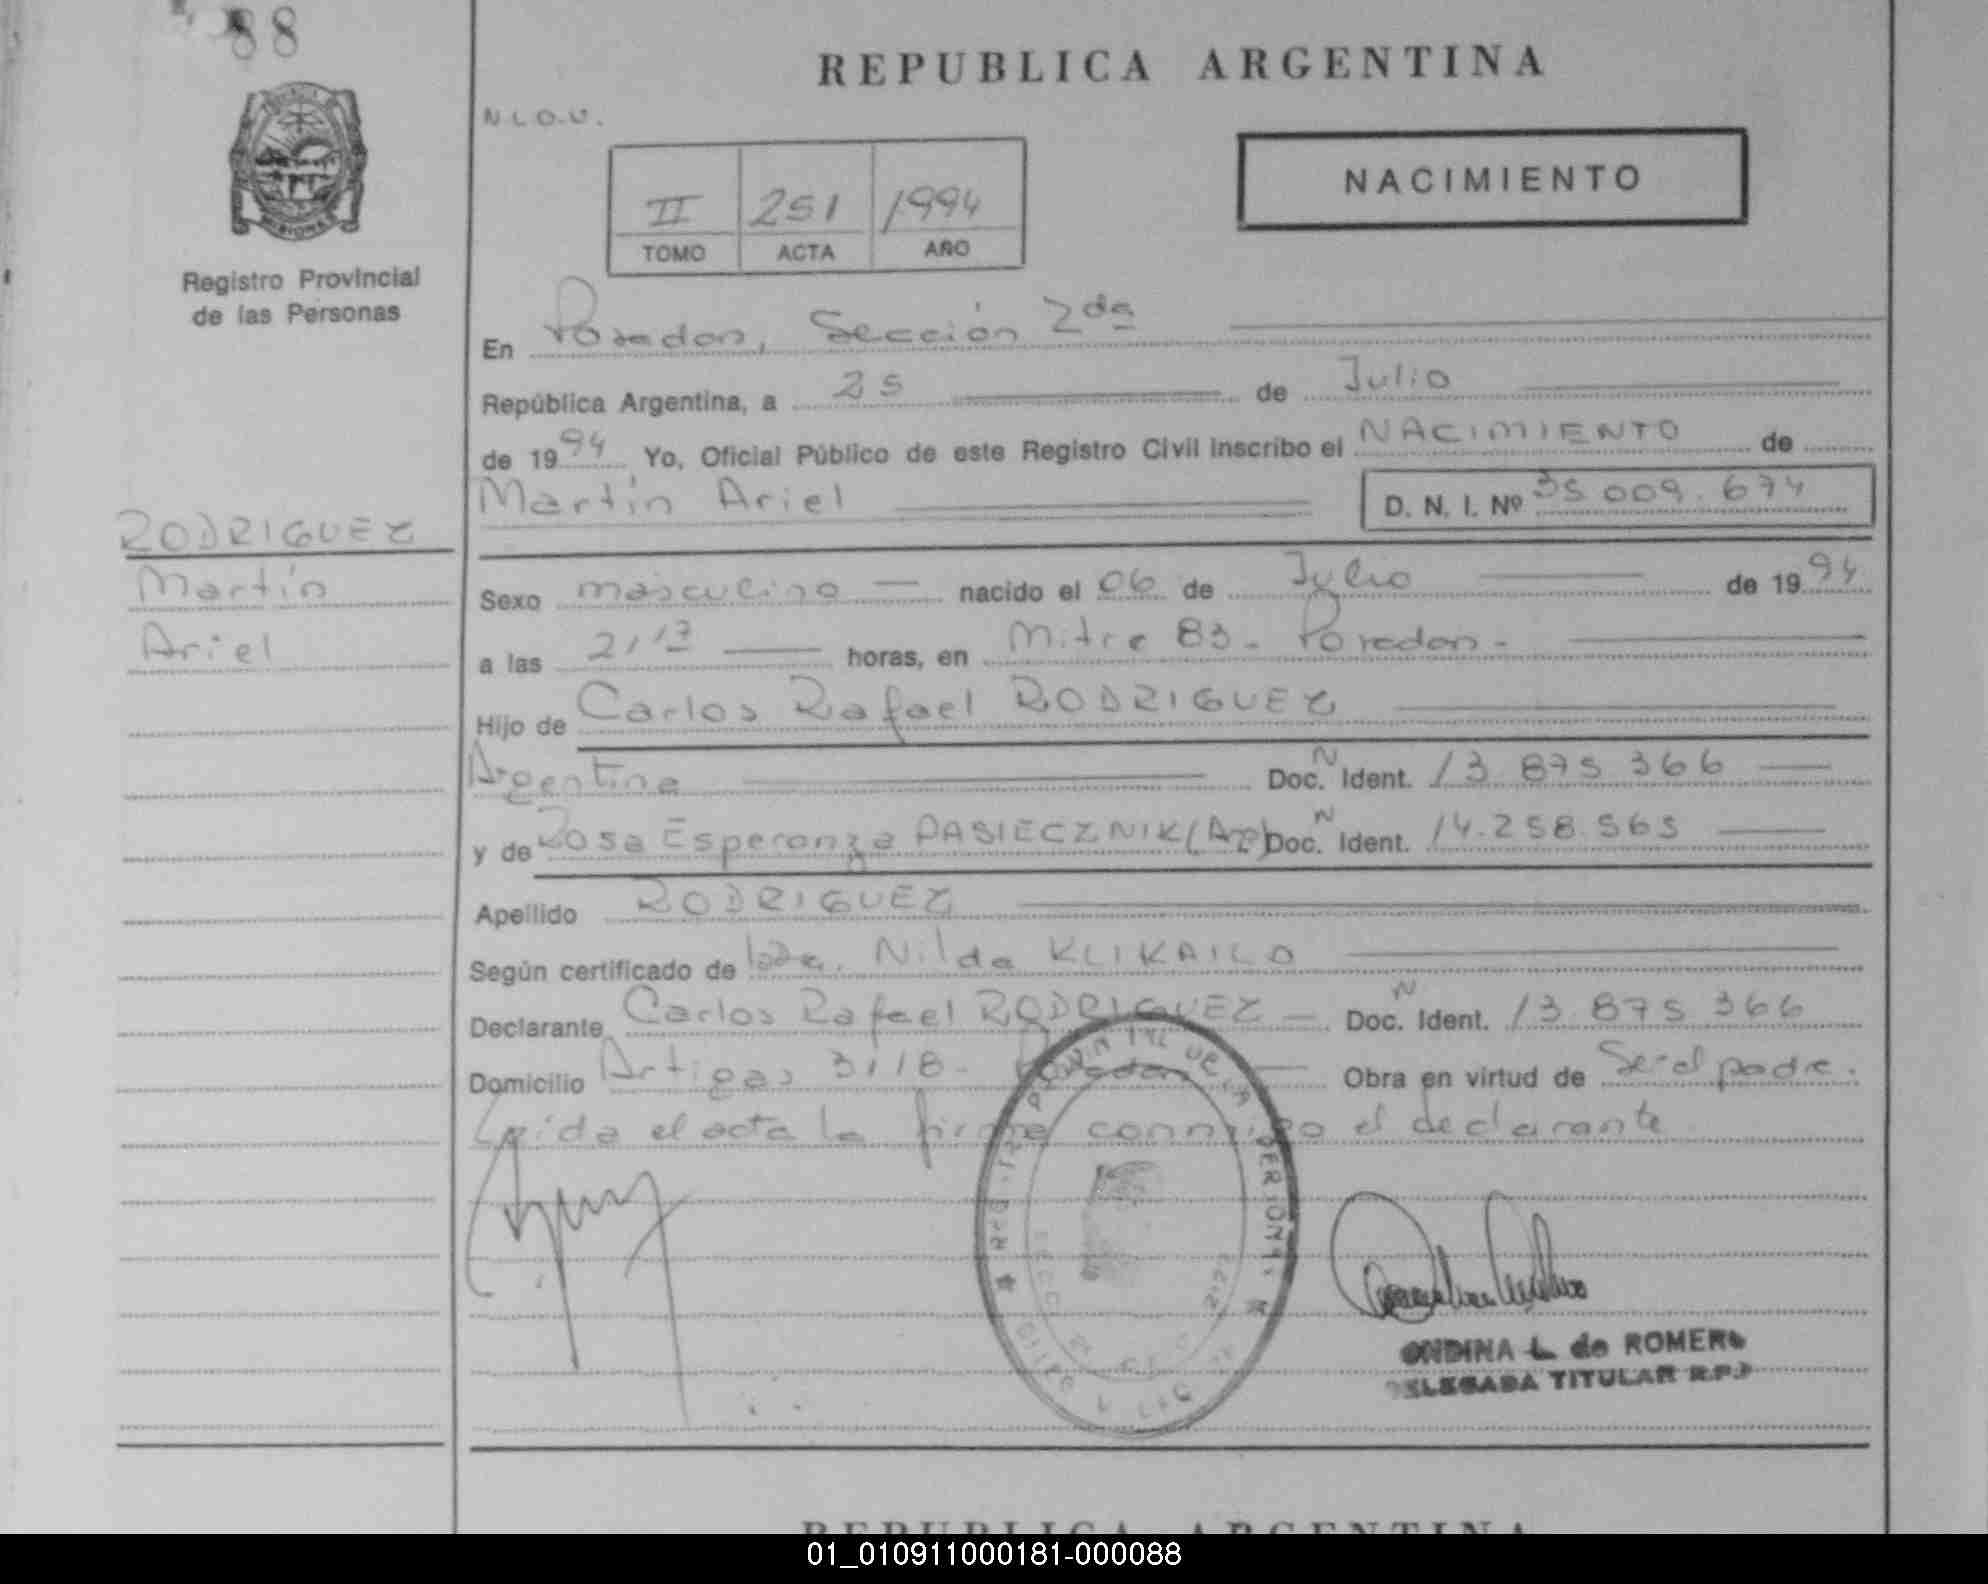 88
REPUBLICA ARGENTINA
N.L.O.U.
NACIMIENTO
II 251 1994
TOMO ACTA AÑO
Registro Provincial
de las Personas
En Posadas, Sección 2da
República Argentina, a 25 de Julio
de 1994 Yo, Oficial Público de este Registro Civil inscribo el NACIMIENTO de
Martín Ariel D. N. I. Nº 35 009.674
RODRIGUEZ
Martín
Ariel
Sexo masculino nacido el 06 de Julio de 1994
a las 21,17 horas, en Mitre 83 - Posadas -
Hijo de Carlos Rafael RODRIGUEZ
Argentina Doc. N Ident. 13 875 366
y de Rosa Esperanza PASIECZNIK (Arg) Doc. N Ident. 14.258.565
Apellido RODRIGUEZ
Según certificado de Nilda KLIKAILO
Declarante Carlos Rafael RODRIGUEZ Doc. N Ident. 13 875 366
Domicilio Artigas 3118 - Posadas Obra en virtud de Ser el padre.
Leída el acta la firma conmigo el declarante
ONDINA L. de ROMERO
DELEGADA TITULAR R.P.P
REPUBLICA ARGENTINA
01_010911000181-000088